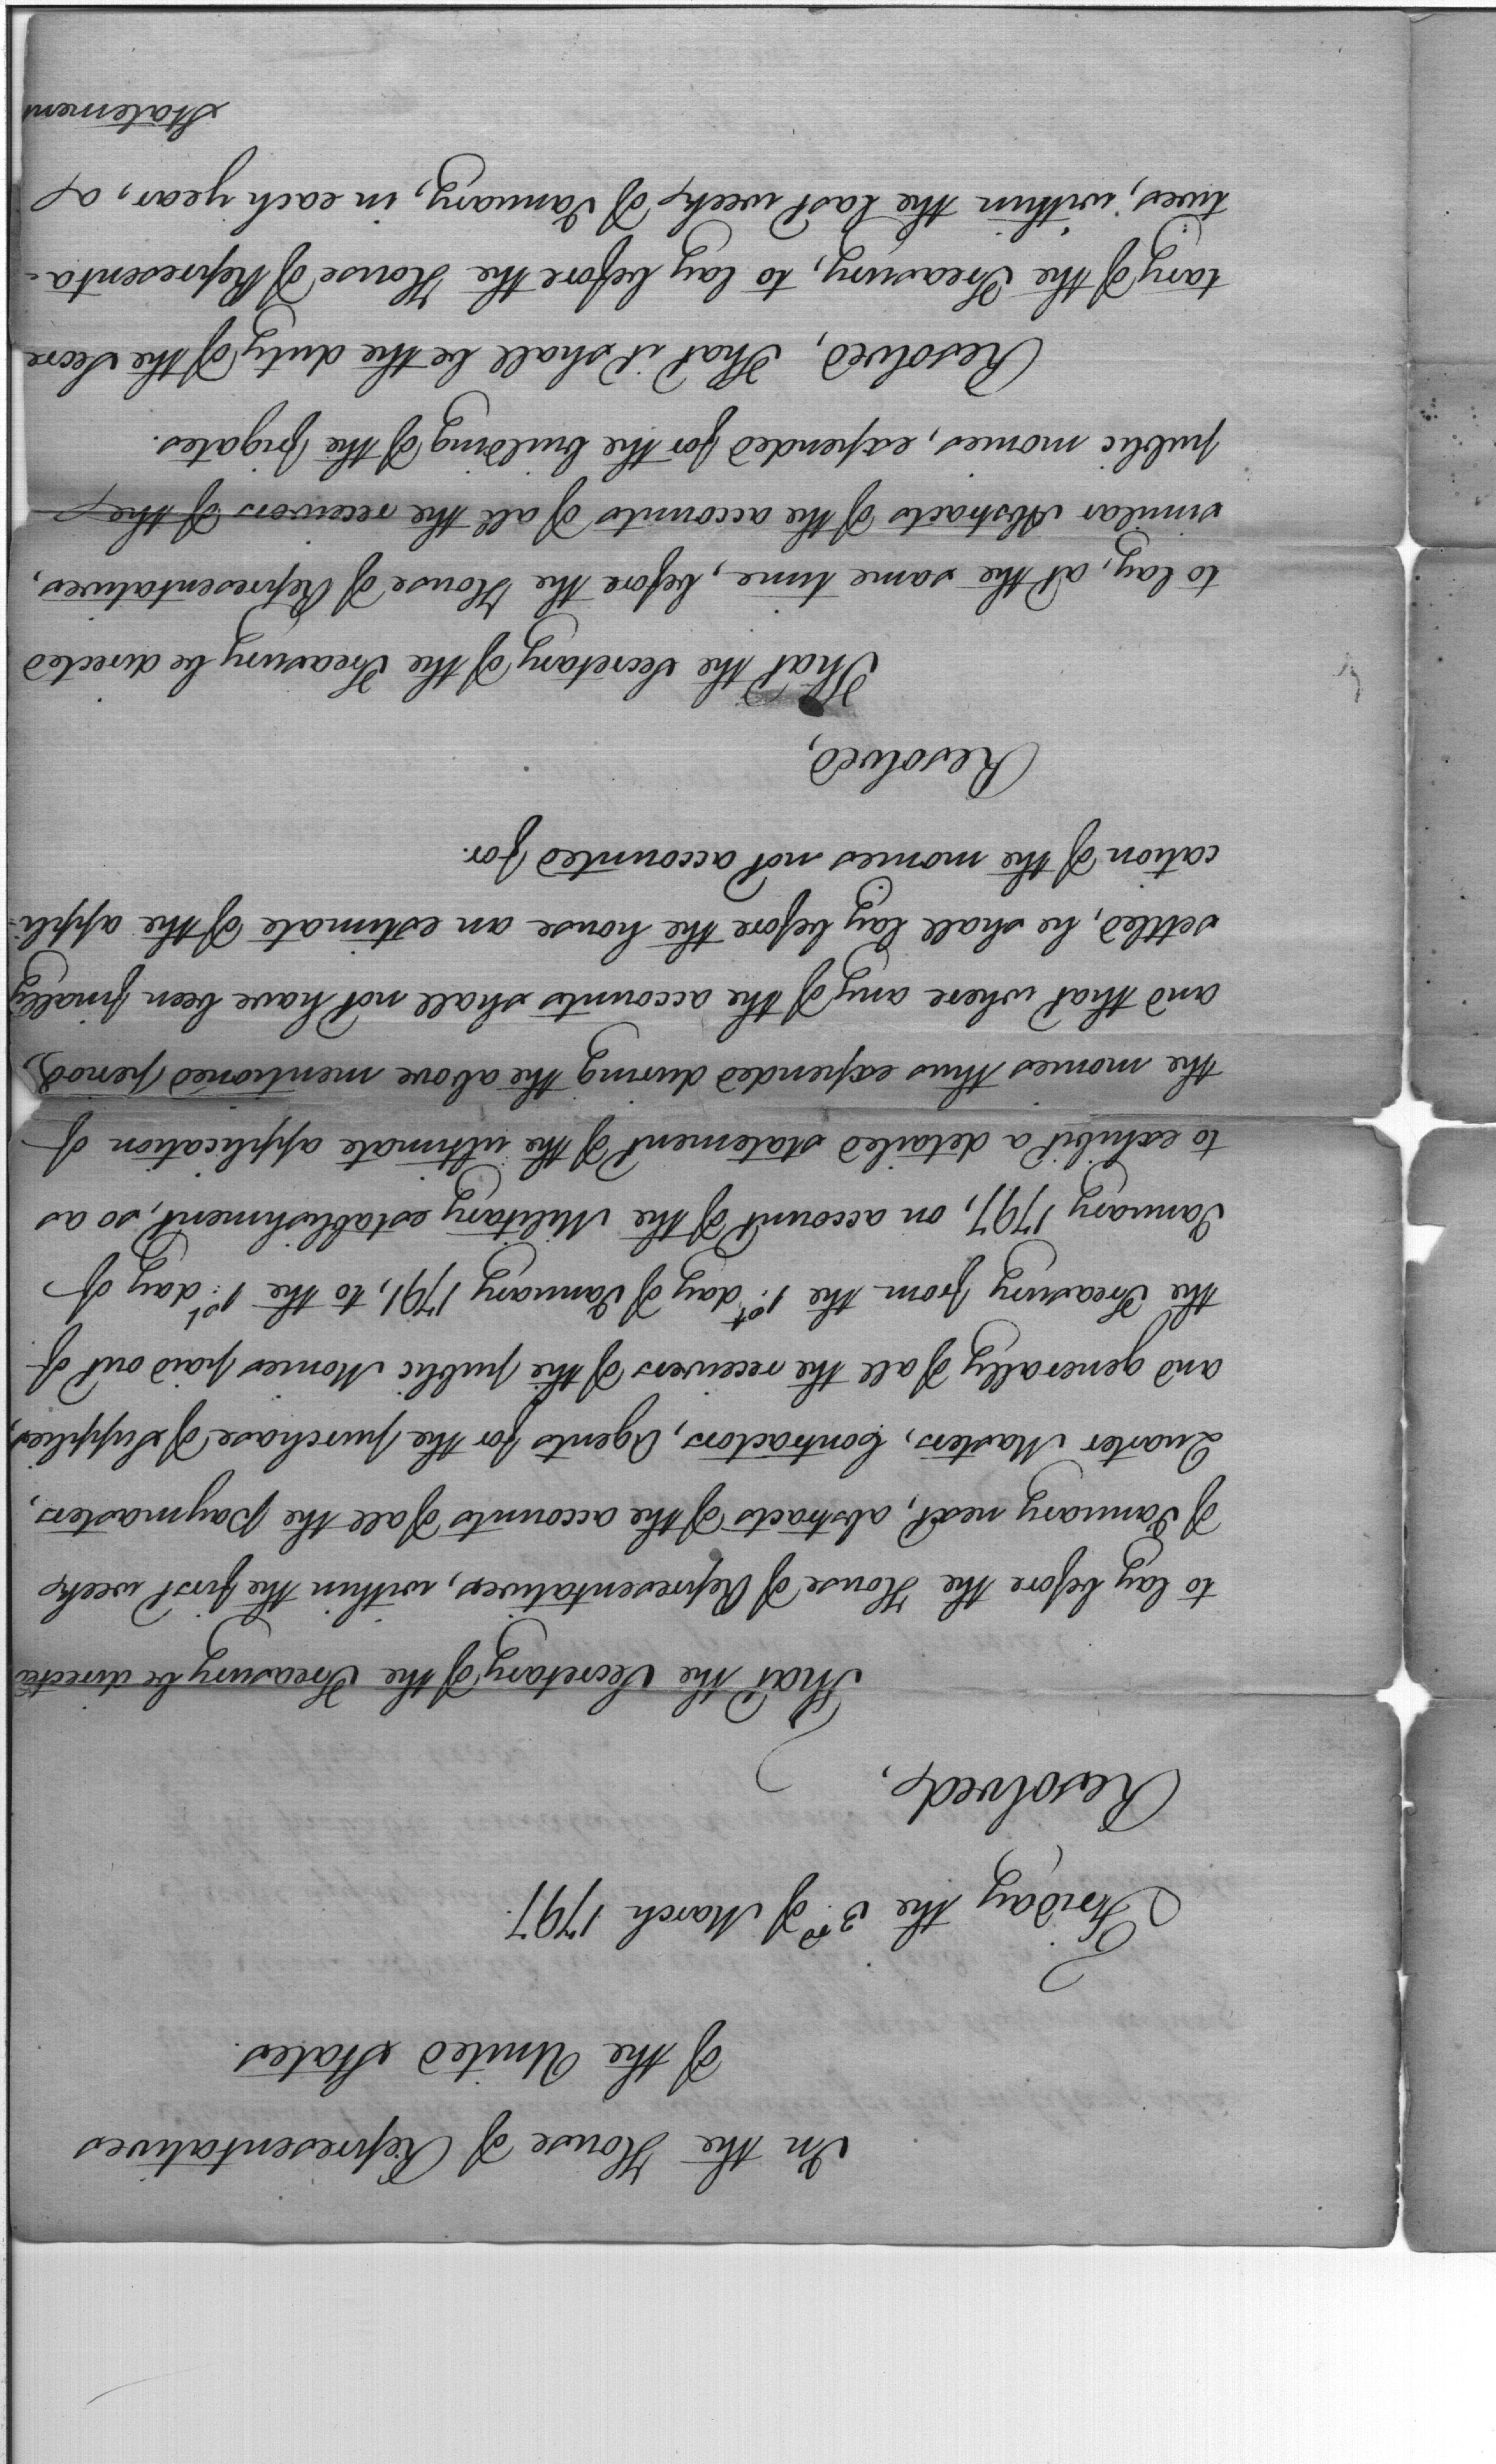 In the House of Representatives
of the United States.
Friday the 3rd of March 1797.
Resolved,
That the Secretary of the Treasury be directed
to lay before the House of Representatives, within the first week
of January next, abstracts of the accounts of all the paymasters,
Quarter Masters, Contractors, Agents for the purchase of supplies,
and generally of all the receivers of the public Monies paid out of
the Treasury from the 1st day of January 1791, to the 1st day of
January 1797, on account of the Military establishment, so as
to exhibit a detailed statement of the ultimate application of
the monies thus expended during the above mentioned period,
and that where any of the accounts shall not have been finally
settled, he shall lay before the house an estimate of the appli-
cation of the monies not accounted for.
Resolved,
That the Secretary of the Treasury be directed
to lay, at the same time, before the House of Representatives,
similar Abstracts of the accounts of all the receivers of the
public monies, expended for the building of the frigates.
Resolved, That it shall be the duty of the Secre
tary of the Treasury, to lay before the House of Representa-
tives, within the last week of January, in each year, a
Statement